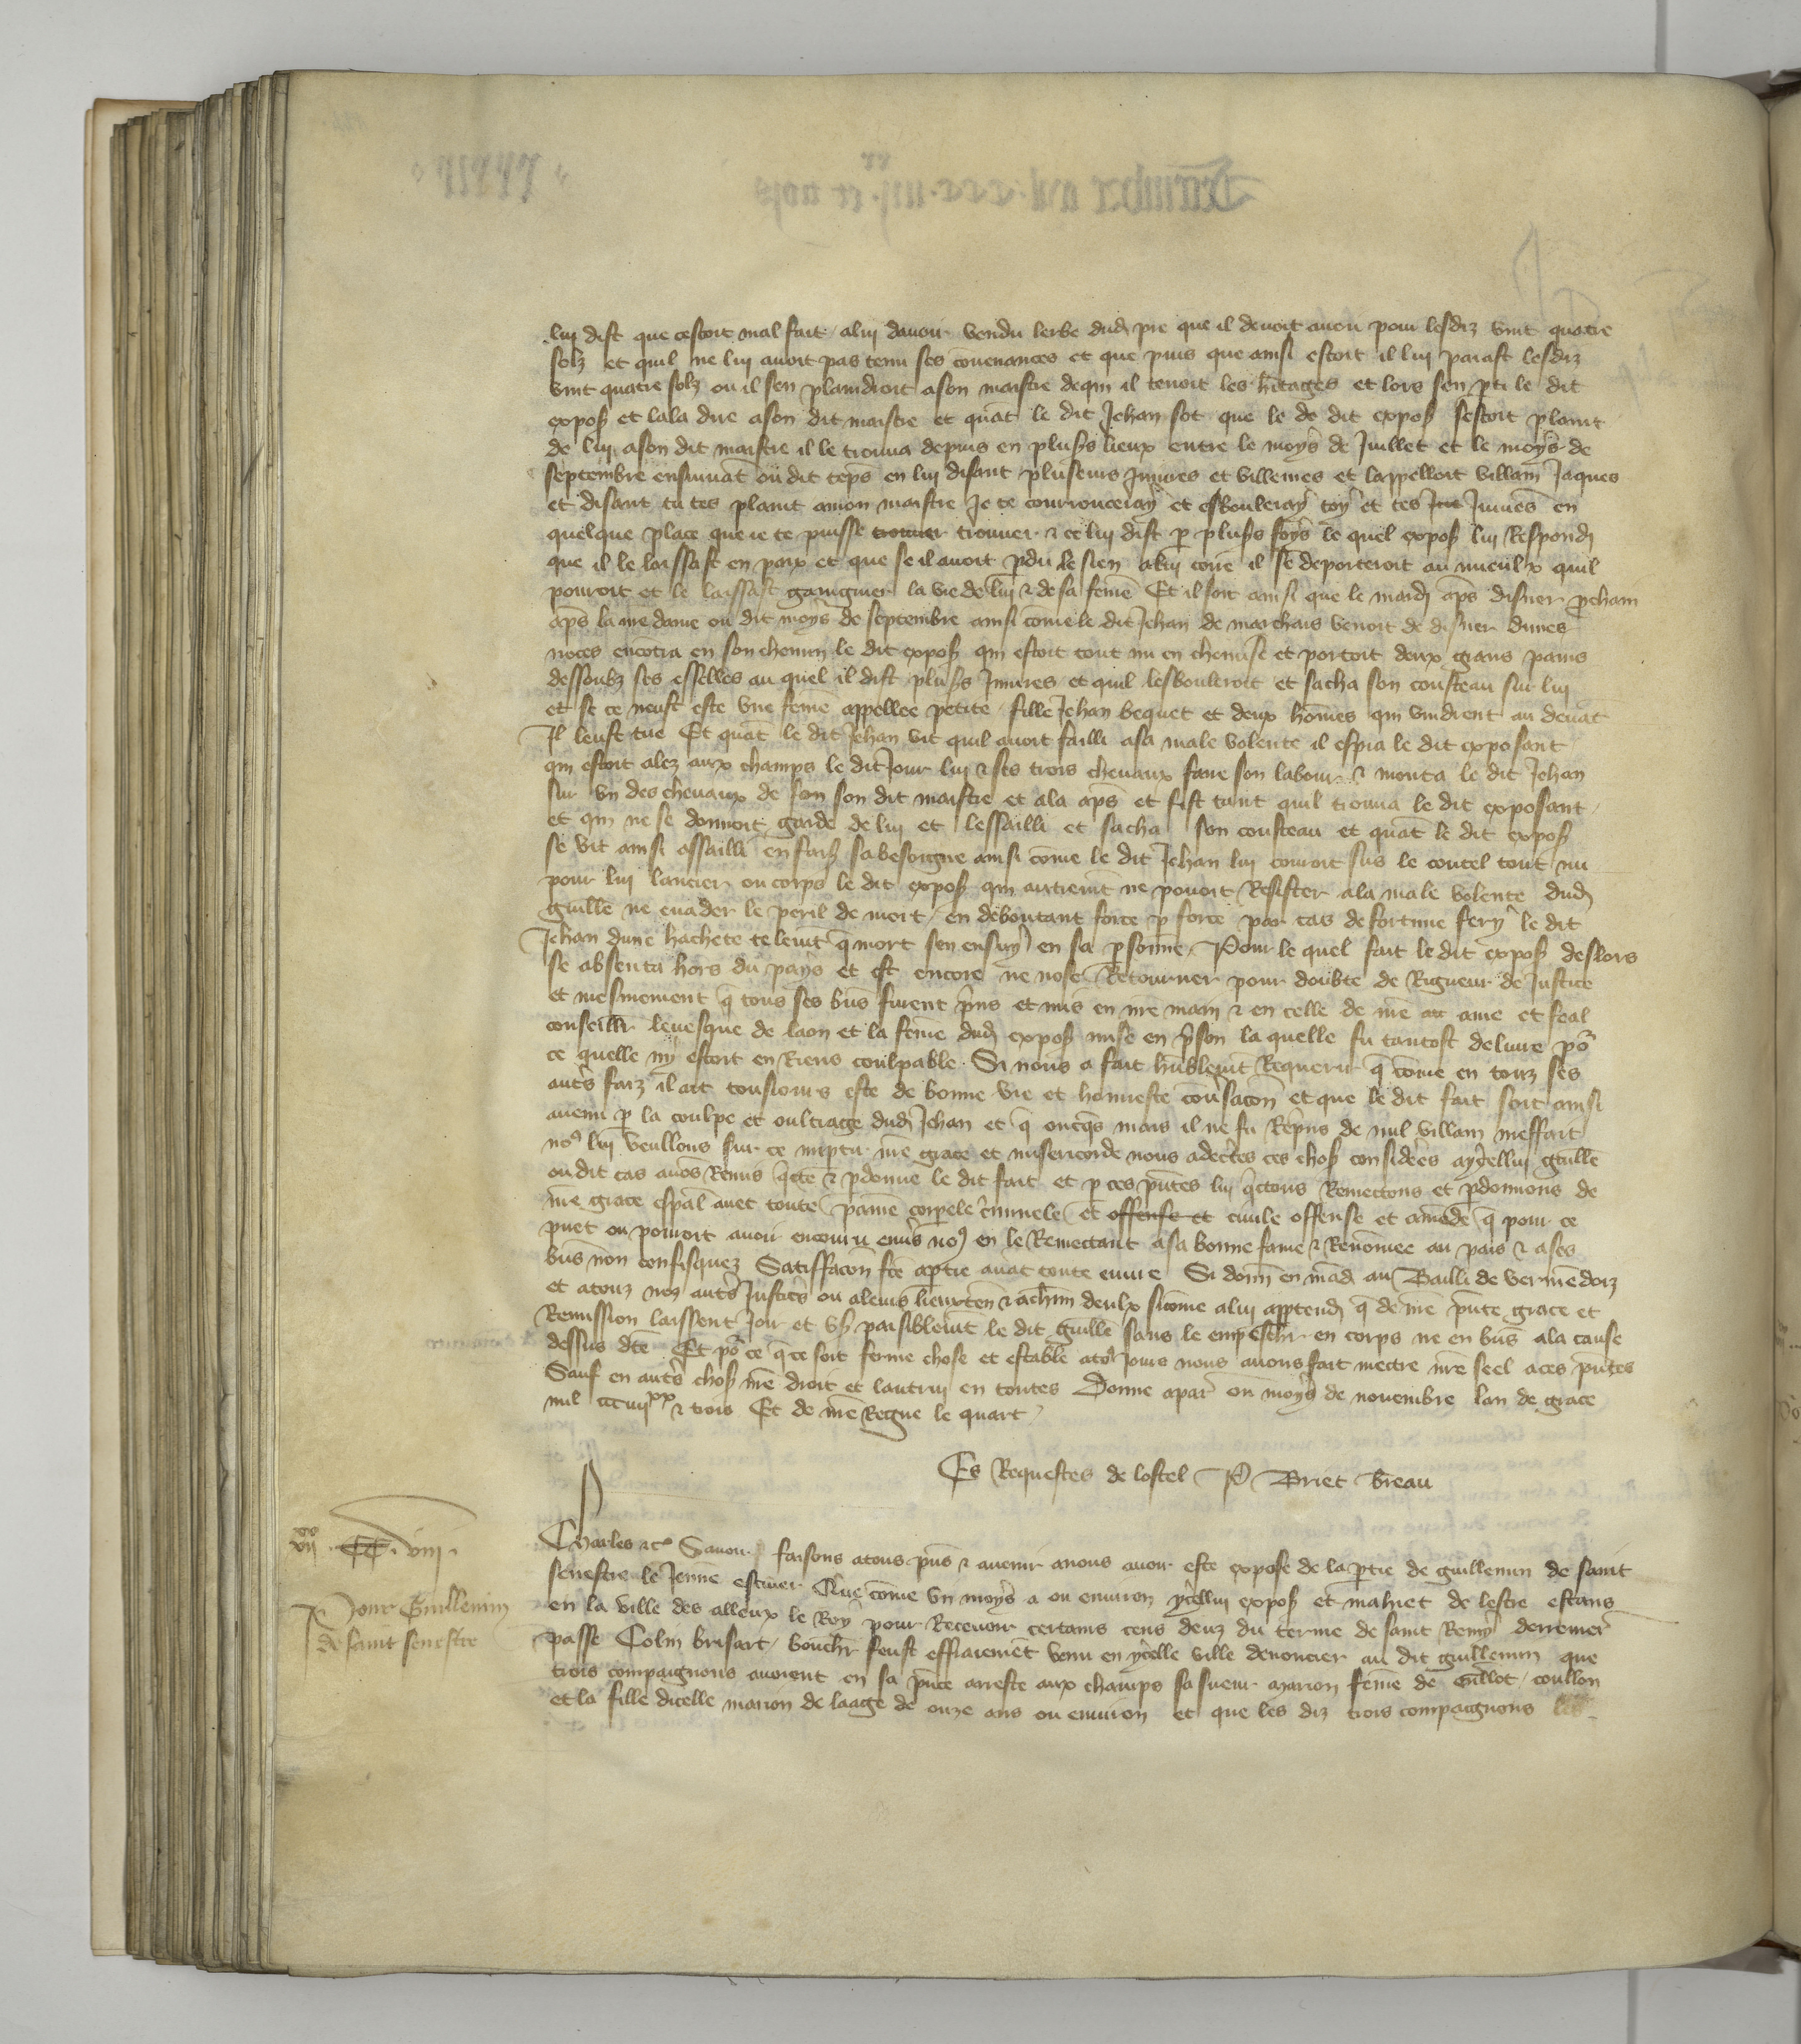 lui dist que cestoit mal fait a lui davoir vendu lerbe dud pre que il devoit avoir pour lesdiz vint quatre
solz et quil ne lui avoit pas tenu ses covenances et que puis que ainsi estoit il lui paiast lesdiz
vint quatre solz ou il sen plaindroit a son maistre de qui il tenoit les hitages et lors sen pti le dit
expos et lala dire a son dit maistre et quat le dit Jehan sot que le de dit expos sestoit plaint
de lui a son dit maistre il le trouva depuis en plusrs lieux entre le moys de Juillet et le moys de
septembre ensuivat ou dit teps en lui disant pluseurs Iniures et villenies et lappelloit villain Jaques
et disant tu tes plaint a mon maistre Je te courrouceray et esbouleray toy et tes Jumes en
quelque place que ie te puisse trouver trouver & ce lui dist p plusrs foys le quel expos lui Respond
que il le laissast en paix et que se il avoit pdu le sien a lui coue il se deporteroit au mieulx quil
pourroit et le laissast gaaigner la vie de lui & de sa feme Et il soit ainsi que le mardi aps disner pcham
aps la nre dame ou dit moys de septembre ainsi come le dit Jehan de marchais venoit de disner dunes
noces encotra en son chemin le dit expos qui estoit tout nu en chemise et portoit deux grans pains
dessoubz ses esselles au quel il dist plusrs Iniures et quil lesbouleroit et sacha son cousteau sur lui
et se ce neust este une feme appellee petite fille Jehan bequet et deux homes qui vindrent au devat
Il leust tue Et quat le dit Jehan vit quil avoit failli a sa male volente il espia le dit exposant
qui estoit alez aux champs le dit Jour lui & ses trois chevaux faire son labour & monta le dit Jehan
sur un des chevaux de son son dit maistre et ala aps et fist tant quil trouva le dit exposant
et qui ne se donnoit garde de lui et lessailli et sacha son cousteau et quat le dit expos
se vit ainsi assailli en fais sa besoigne ainsi come le dit Jehan lui couroit sus le coutel tout nu
pour lui lancier ou corps le dit expos qui autremt ne povoit Resister a la male volente dud
guille ne evader le peril de mort en deboutant force p force par cas de fortune fery le dit
Jehan dune hachete telemt q mort sen ensuy en sa psonne Pour le quel fait le dit expos deslors
se absenta hors du pays et est encore ne nose Retourner pour doubte de Rigueur de Justice
et mesmement q tous ses bns furent prins et mis en nre main & en celle de nre ame et feal
conseillr levesque de laon et la feme dud expos mise en prison la quelle fu tantost delivre po
ce quelle ny estoit en Riens coulpable Si nous a fait humblemt Requerir q come en touz ses
auts faiz il ait tousiours este de bonne vie et honneste coversacon et que le dit fait soit ainsi
avenu p la coulpe et oultrage dud Jehan et q oncqs mais il ne fu Repris de nul villain meffait
no lui veullons sur ce impetir nre grace et misericorde nous adecertes ces chos considerees a ycellui guille
ou dit cas avos Remis qtte & pdonne le dit fait et p ces pntes lui qttons Remettons et pdonnons de
nre grace espal avec toute paine corpele criminele et offense et civile offense et amede q pour ce
puet ou pourroit avoir encouru envs no en le Remettant a sa bonne fame & Renomee au pais & a ses
bns non confisquez Satisfacon fce a ptie avat toute euvre Si donn en mad au Bailli de vermedoiz
et a touz noz auts Justics ou a leurs lieuxten & a chm deulx sicome a lui apptend q de nre pnte grace et
Remission laissent Joir et us paisiblemt le dit guille sans le empeschr en corps ne en bns a la cause
dessus dte Et po ce q ce soit ferme chose et estable a tosiours nous avons fait mettre nre seel a ces pntes
Sauf en auts chos nre droit et lautrui en toutes Donne a par ou moys de novembre lan de grace
mil ccciiijxx & trois Et de nre Regne le quart
Es Requestes de lostel P Briet breau
xx
vii CC viii
Pour Guillemin
de saint senestre
Charles &c Savoir faisons a tous pns & avenir a nous avoir este expose de la ptie de guillemin de saint
senestre le Jeune escuier Que come un moys a ou environ ycellui expos et mahiet de lestre estans
en la ville des alleux le Roy pour Recevoir certains cens deuz du terme de saint Remy derrenier
passe Colin brisart bouchr feust effraiement venu en ycelle ville denoncier au dit guillemin que
trois compaignons avoient en sa pnce arreste aux champs sa sueur marion feme de Gillot coullon
et la fille dicelle marion de laage de onze ans ou environ et que les diz trois compaignons les